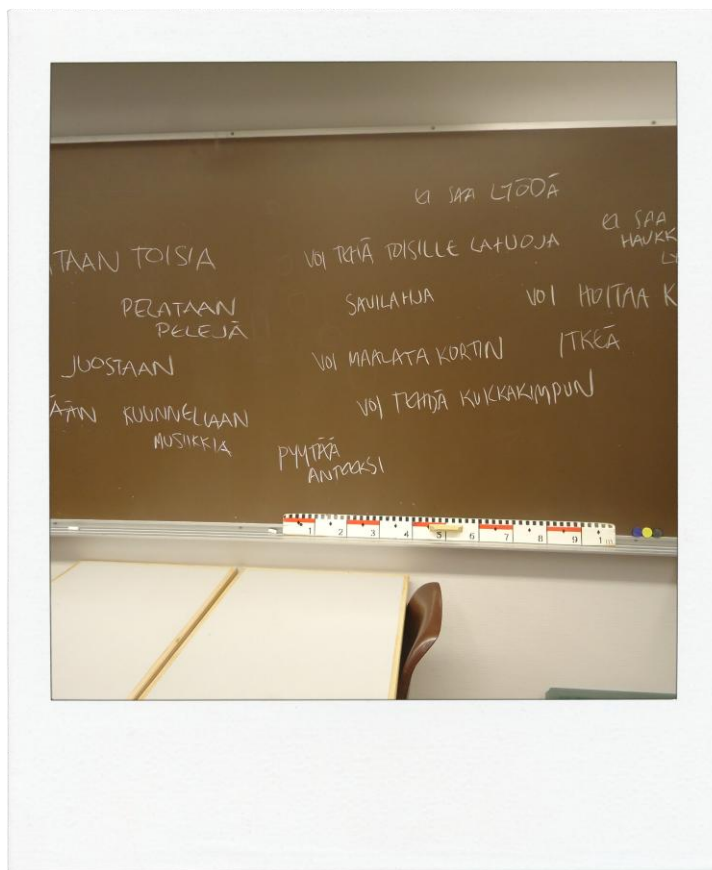 EI SAA LYÖDÄ
TAAN TOISIA
VOI TEHÄ TOISILLE LAHJOJA
EI SAA
HAUKK
PELATAAN
PELEJÄ
SAVILAHJA
VOI HOITAA K
JUOSTAAN
VOI MAALATA KORTIN
ITKEÄ
ÄÄN KUUNNELLAAN
MUSIIKKIA
VOI TEHDÄ KUKKAKIMPUN
PYYTÄÄ
ANTEEKSI
1 2 3 4 5 6 7 8 9